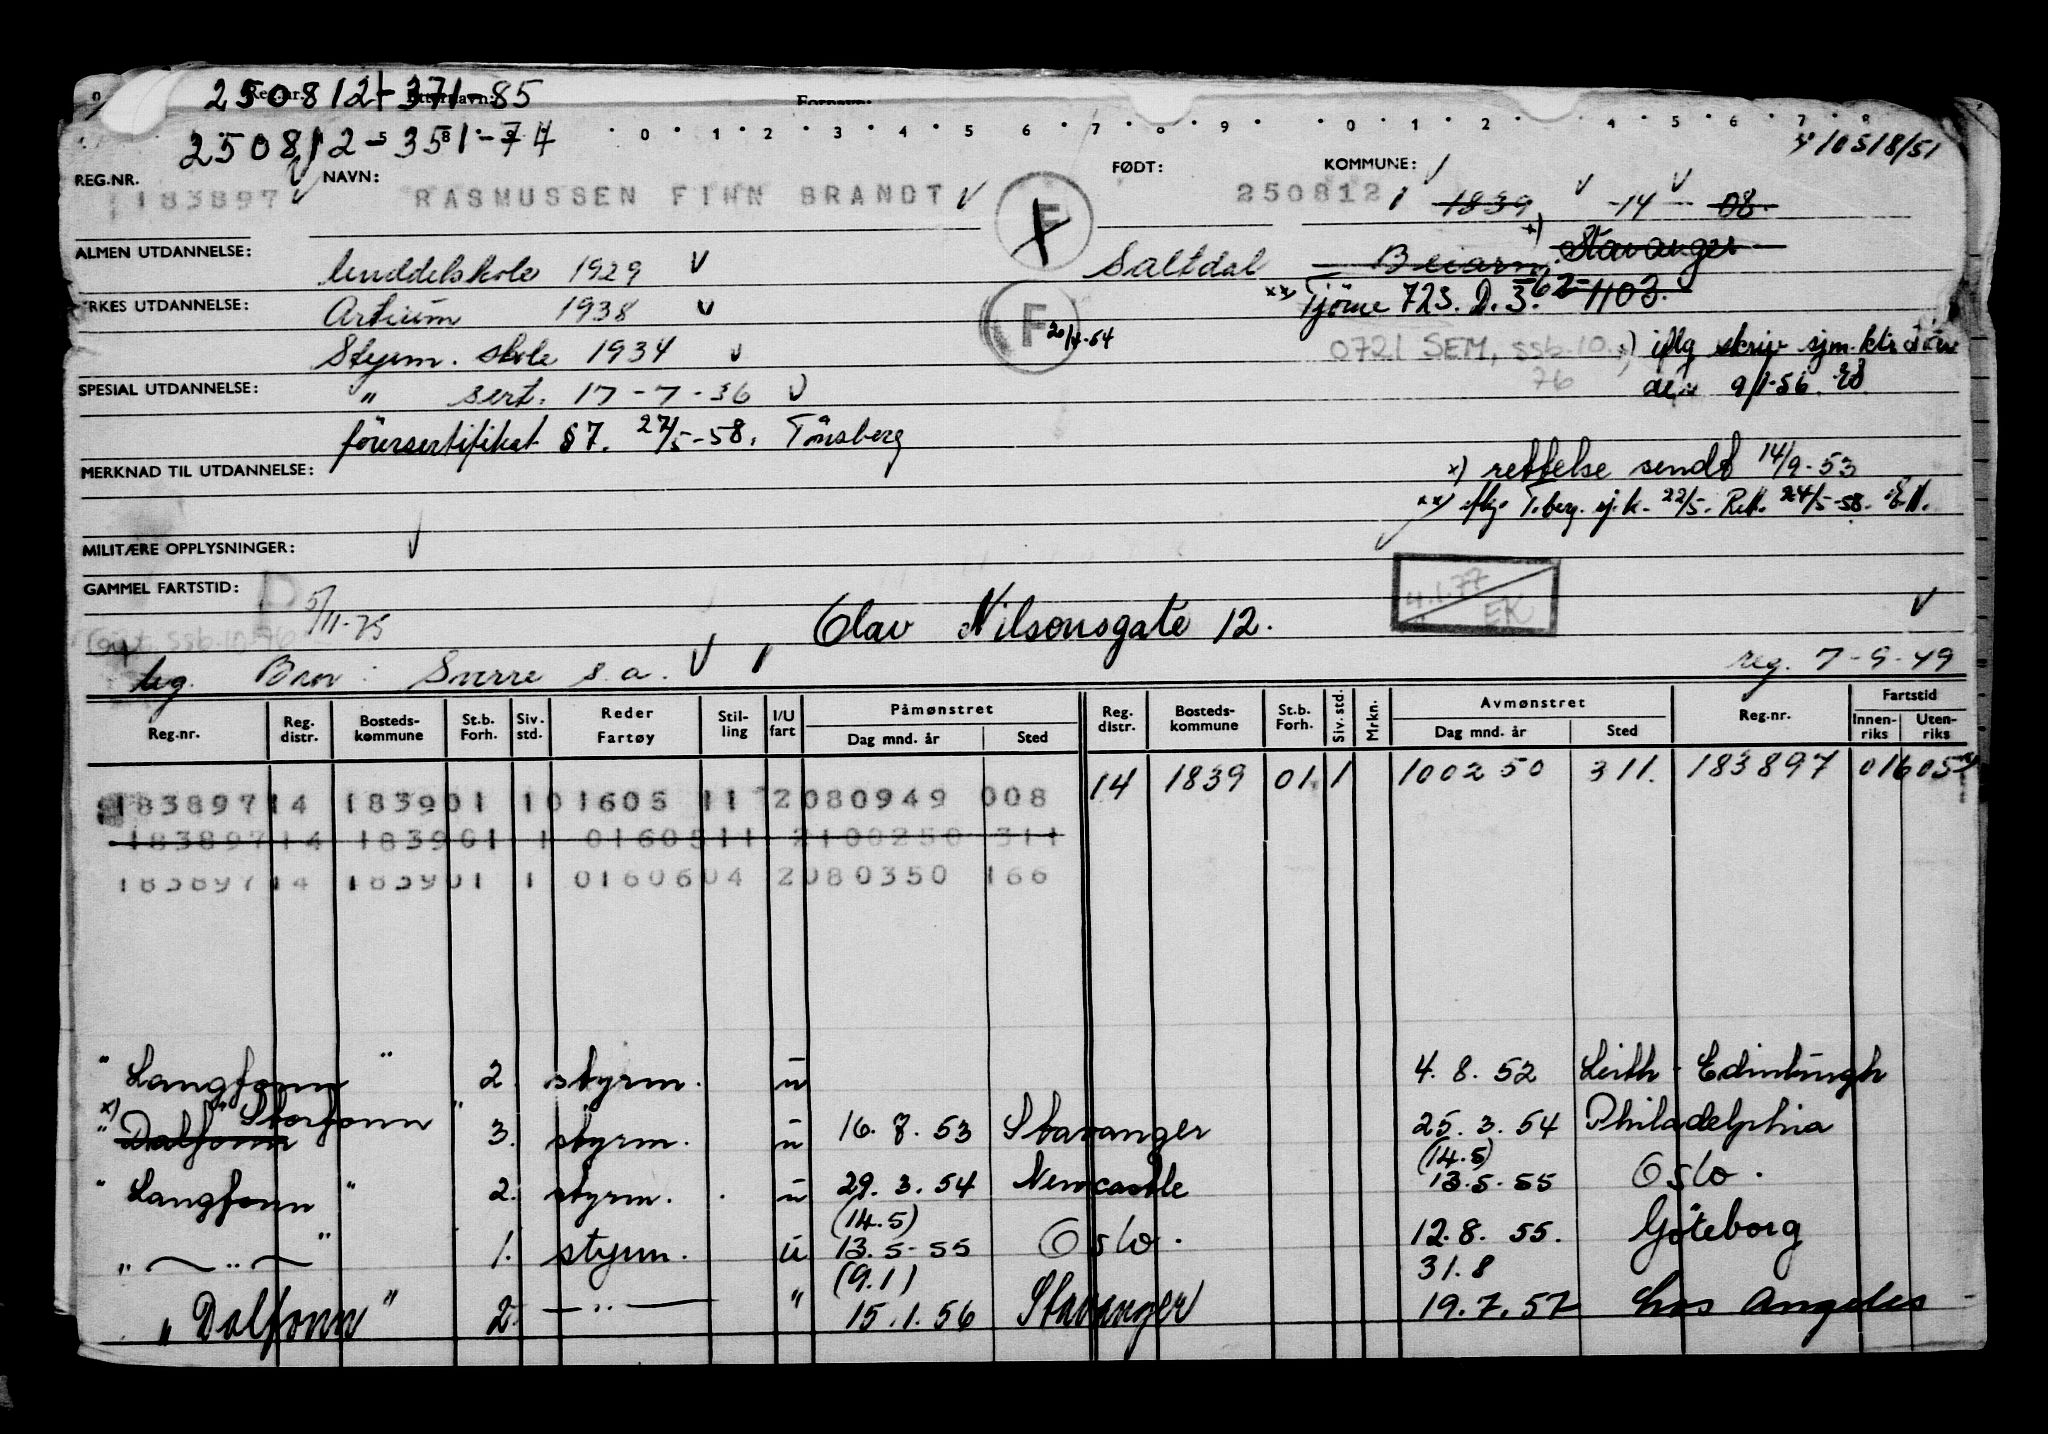 Reg.nr. Fornavn:
250812-371-85
250812-351-74
0 1 2 3 4 5 6 7 8 9 0 1 2 4 5 6 7 8
10518/51
REG.NR. NAVN: FØDT: KOMMUNE:
183897 RASMUSSEN FINN BRANDT F 250812 1839 -14- 08.
ALMEN UTDANNELSE: Middelskole 1929 Saltdal Beiarn x) Stavanger
YRKES UTDANNELSE: Artium 1938 F 20/4-54 xx) Tjöme 723. D. 3. 62 1103.
Styrm. skole 1934 0721 SEM, ssb.10.76 x) iflg skriv sjm.ktr.
SPESIAL UTDANNELSE: " sert. 17-7-36 den 9/1-56
förersertifikat §7. 27/5-58. Tönsberg
MERKNAD TIL UTDANNELSE: x) rettelse sendt 14/9-53
xx) iflg. T.berg. sj.k. 22/5. Rett. 24/5-58.
MILITÆRE OPPLYSNINGER:
GAMMEL FARTSTID: 5/11-75 4.1.77 EK
ssb.10.76
Olav Nilsonsgate 12.
Bror: Sverre s.a. reg. 7-9-49
Reg.nr. Reg. distr. Bosteds-kommune St.b. Forh. Siv. std. Reder Fartøy Stil-ling I/U fart Påmønstret Dag mnd. år Sted Reg. distr. Bosteds-kommune St.b. Forh. Siv. std. Mrkn. Avmønstret Dag mnd. år Sted Reg.nr. Fartstid Innen-riks Uten-riks
183897 14 1839 01 1 01605 11 2 080949 008 14 1839 01 1 100250 311. 183897 01605
183897 14 1839 01 1 01605 11 2 100250 311
183897 14 1839 01 1 01606 04 2 080350 166
" Langfonn " 2. styrm. u 4.8.52 Leith-Edinburgh
x) " Dalfonn Storfonn " 3. styrm. u 16.8.53 Stavanger 25.3.54 Philadelphia
" Langfonn " 2. styrm. u 29.3.54 Newcastle (14.5) 13.5.55 Oslo.
" — " — " 1. styrm. u (14.5) 13.5-55 Oslo. 12.8.55. Göteborg
" Dalfonn " 2. — " — " (9.1) 15.1.56 Stavanger 31.8 19.7.57 Los Angeles